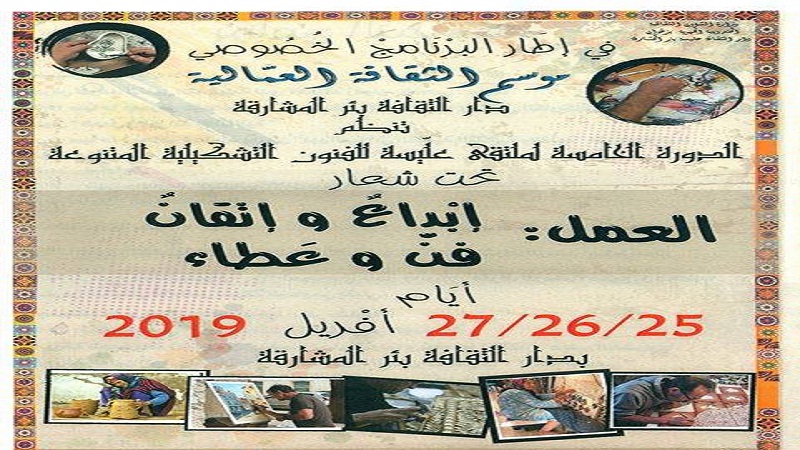 في إطار البرنامج الخُصُوصي
موسم الثقافة العمّالية
دار الثقافة بئر المشارقة
تنظّم
الدورة الخامسة لملتقى علّيسة للفنون التشكيلية المتنوعة
تحت شعار
العمل: إبْداعٌ و إتقانٌ
فنّ و عَطاء
أيّام
27/26/25 أفريل 2019
بدار الثقافة بئر المشارقة